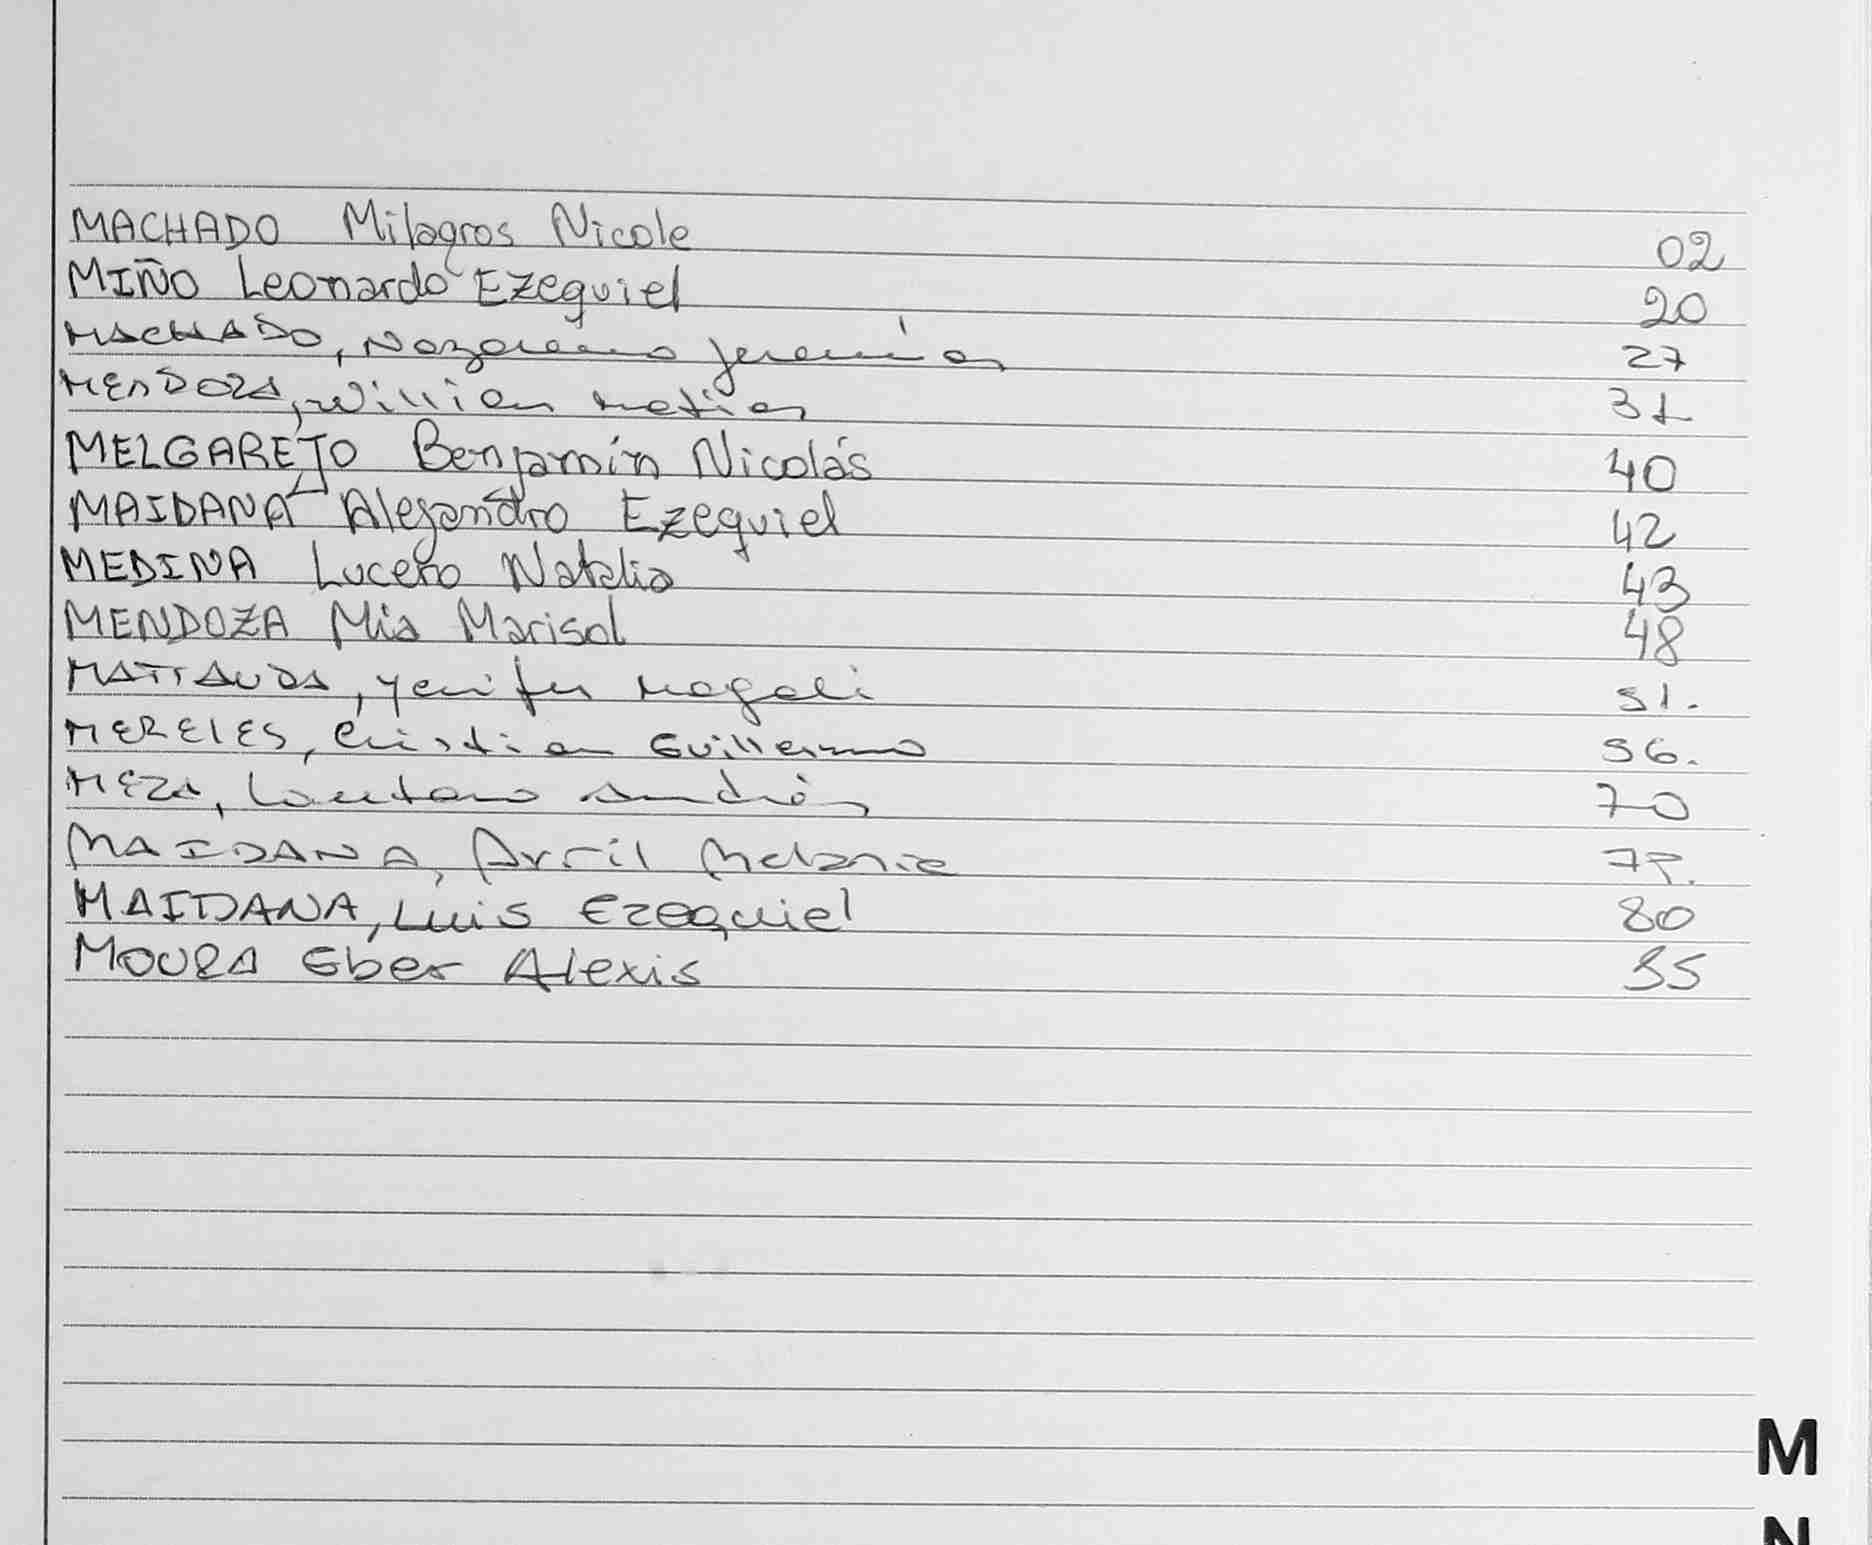 MACHADO Milagros Nicole 02
MIÑO Leonardo Ezequiel 20
MACHADO, Nazareno Jeremías 27
MENDOZA, Willian Matias 31
MELGAREJO Benjamín Nicolás 40
MAIDANA Alejandro Ezequiel 42
MEDINA Lucero Natalia 43
MENDOZA Mia Marisol 48
MATTAUDA, Yenifer Magali 51.
MERELES, Cristian Guillermo 56.
MEZA, Lautaro Andrés 70
MAIDANA, Avril Melanie
MAIDANA, Luis Ezequiel 80
MOURA Eber Alexis
M
N